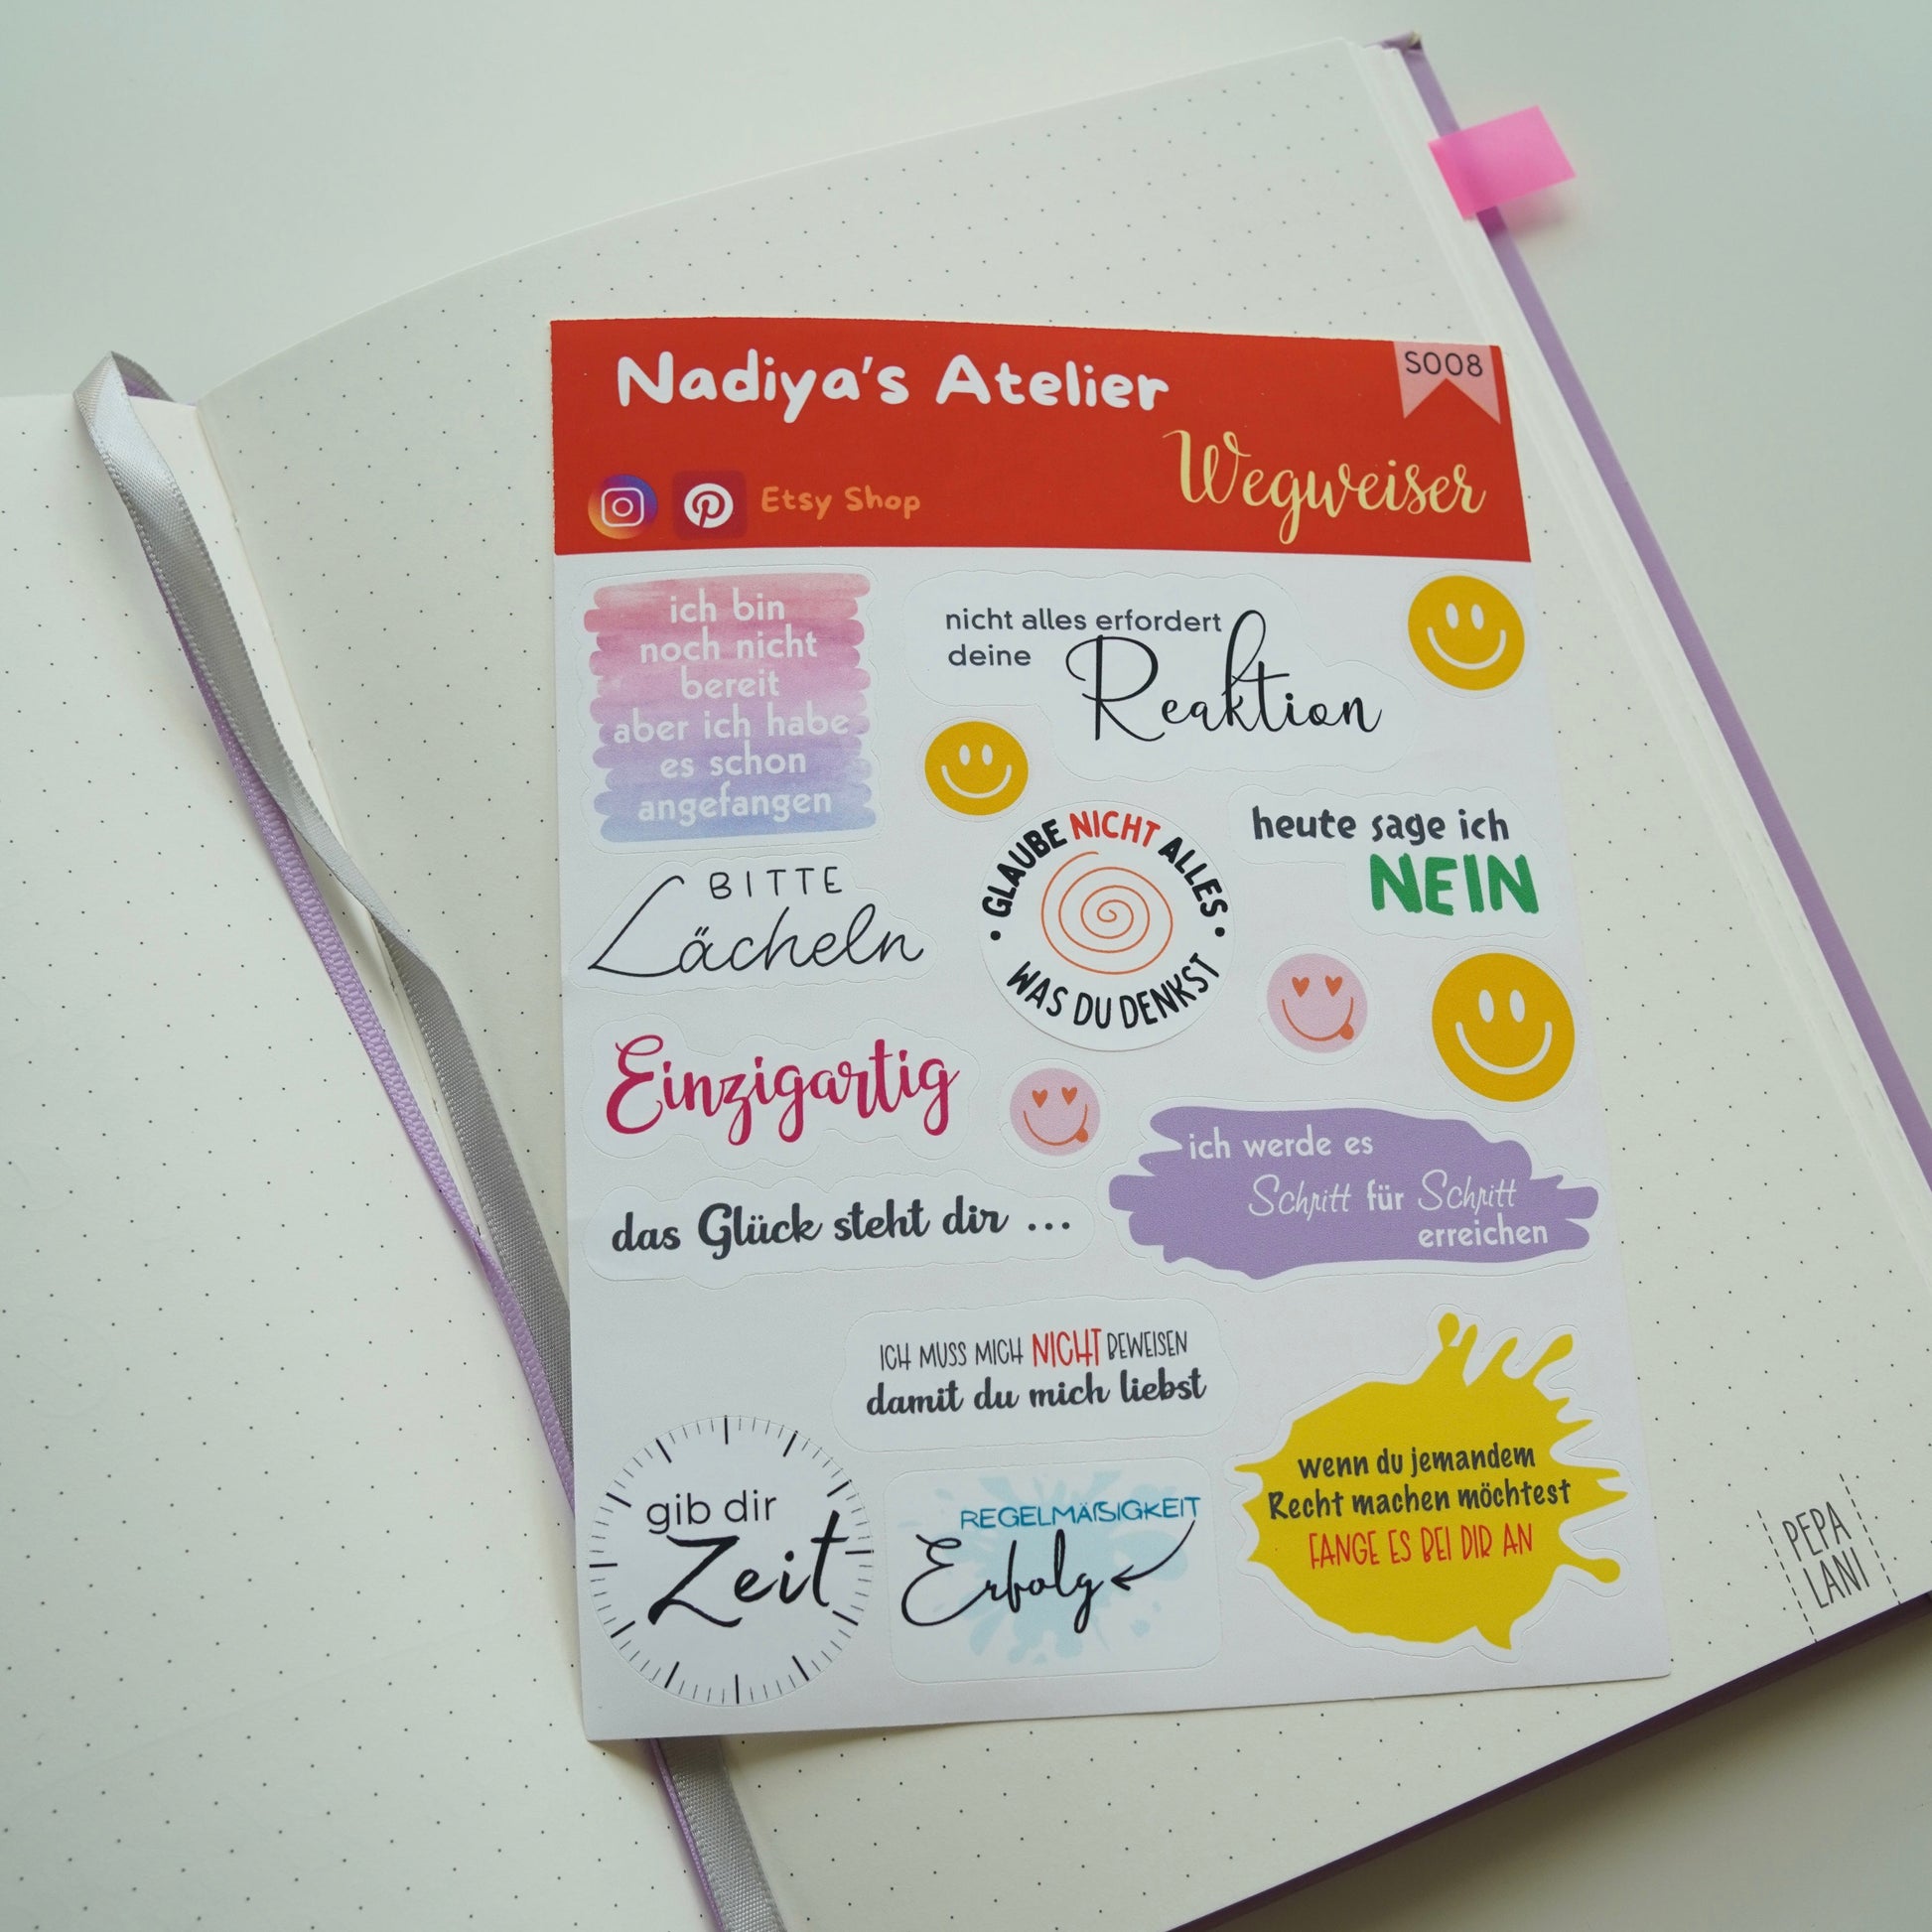 Nadiya's Atelier
S008
Wegweiser
Etsy Shop
ich bin
noch nicht
bereit
aber ich habe
es schon
angefangen
nicht alles erfordert
deine Reaktion
GLAUBE NICHT ALLES
WAS DU DENKST
heute sage ich
NEIN
BITTE
Lächeln
Einzigartig
ich werde es
Schritt für Schritt
erreichen
das Glück steht dir ...
ICH MUSS MICH NICHT BEWEISEN
damit du mich liebst
gib dir
Zeit
REGELMÄßIGKEIT
Erfolg
wenn du jemandem
Recht machen möchtest
FANGE ES BEI DIR AN
PEPA
LANI